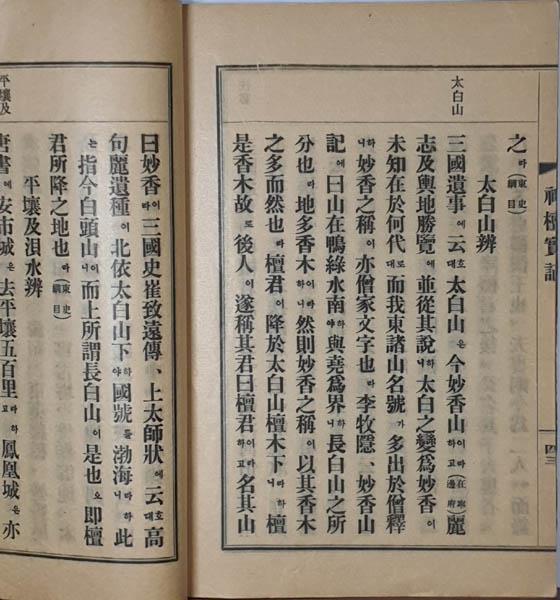 神檀實記
四三
太白山
之라(東史綱目)
太白山辨
三國遺事에云호대太白山은今妙香山이라하고(在寧邊府)麗
志及輿地勝覽에並從其說하니太白之變爲妙香이
未知在於何代로대而我東諸山名號가多出於僧釋
하니妙香之稱이亦僧家文字也라李牧隱、妙香山
記에曰山在鴨綠水南하야與堯爲界하니長白山之所
分也라地多香木하니라然則妙香之稱이以其香木
之多而然也라檀君이降於太白山檀木下라하니檀
是香木故로後人이遂稱其君曰檀君이라하고名其山
平壤及
曰妙香이라三國史崔致遠傳、上太師狀에云호대高
句麗遺種이北依太白山下하야國號를渤海라하니此
는指今白頭山이니而上所謂長白山이是也오卽檀
君所降之地也라(東史綱目)
平壤及浿水辨
唐書에安市城은去平壤五百里라하고鳳凰城은亦